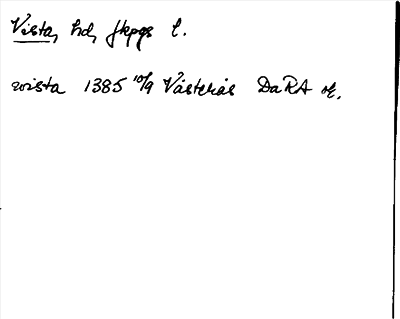 Vista, hd, Jkpgs l.
wista 1385 10/9 Västerås DaRA or.